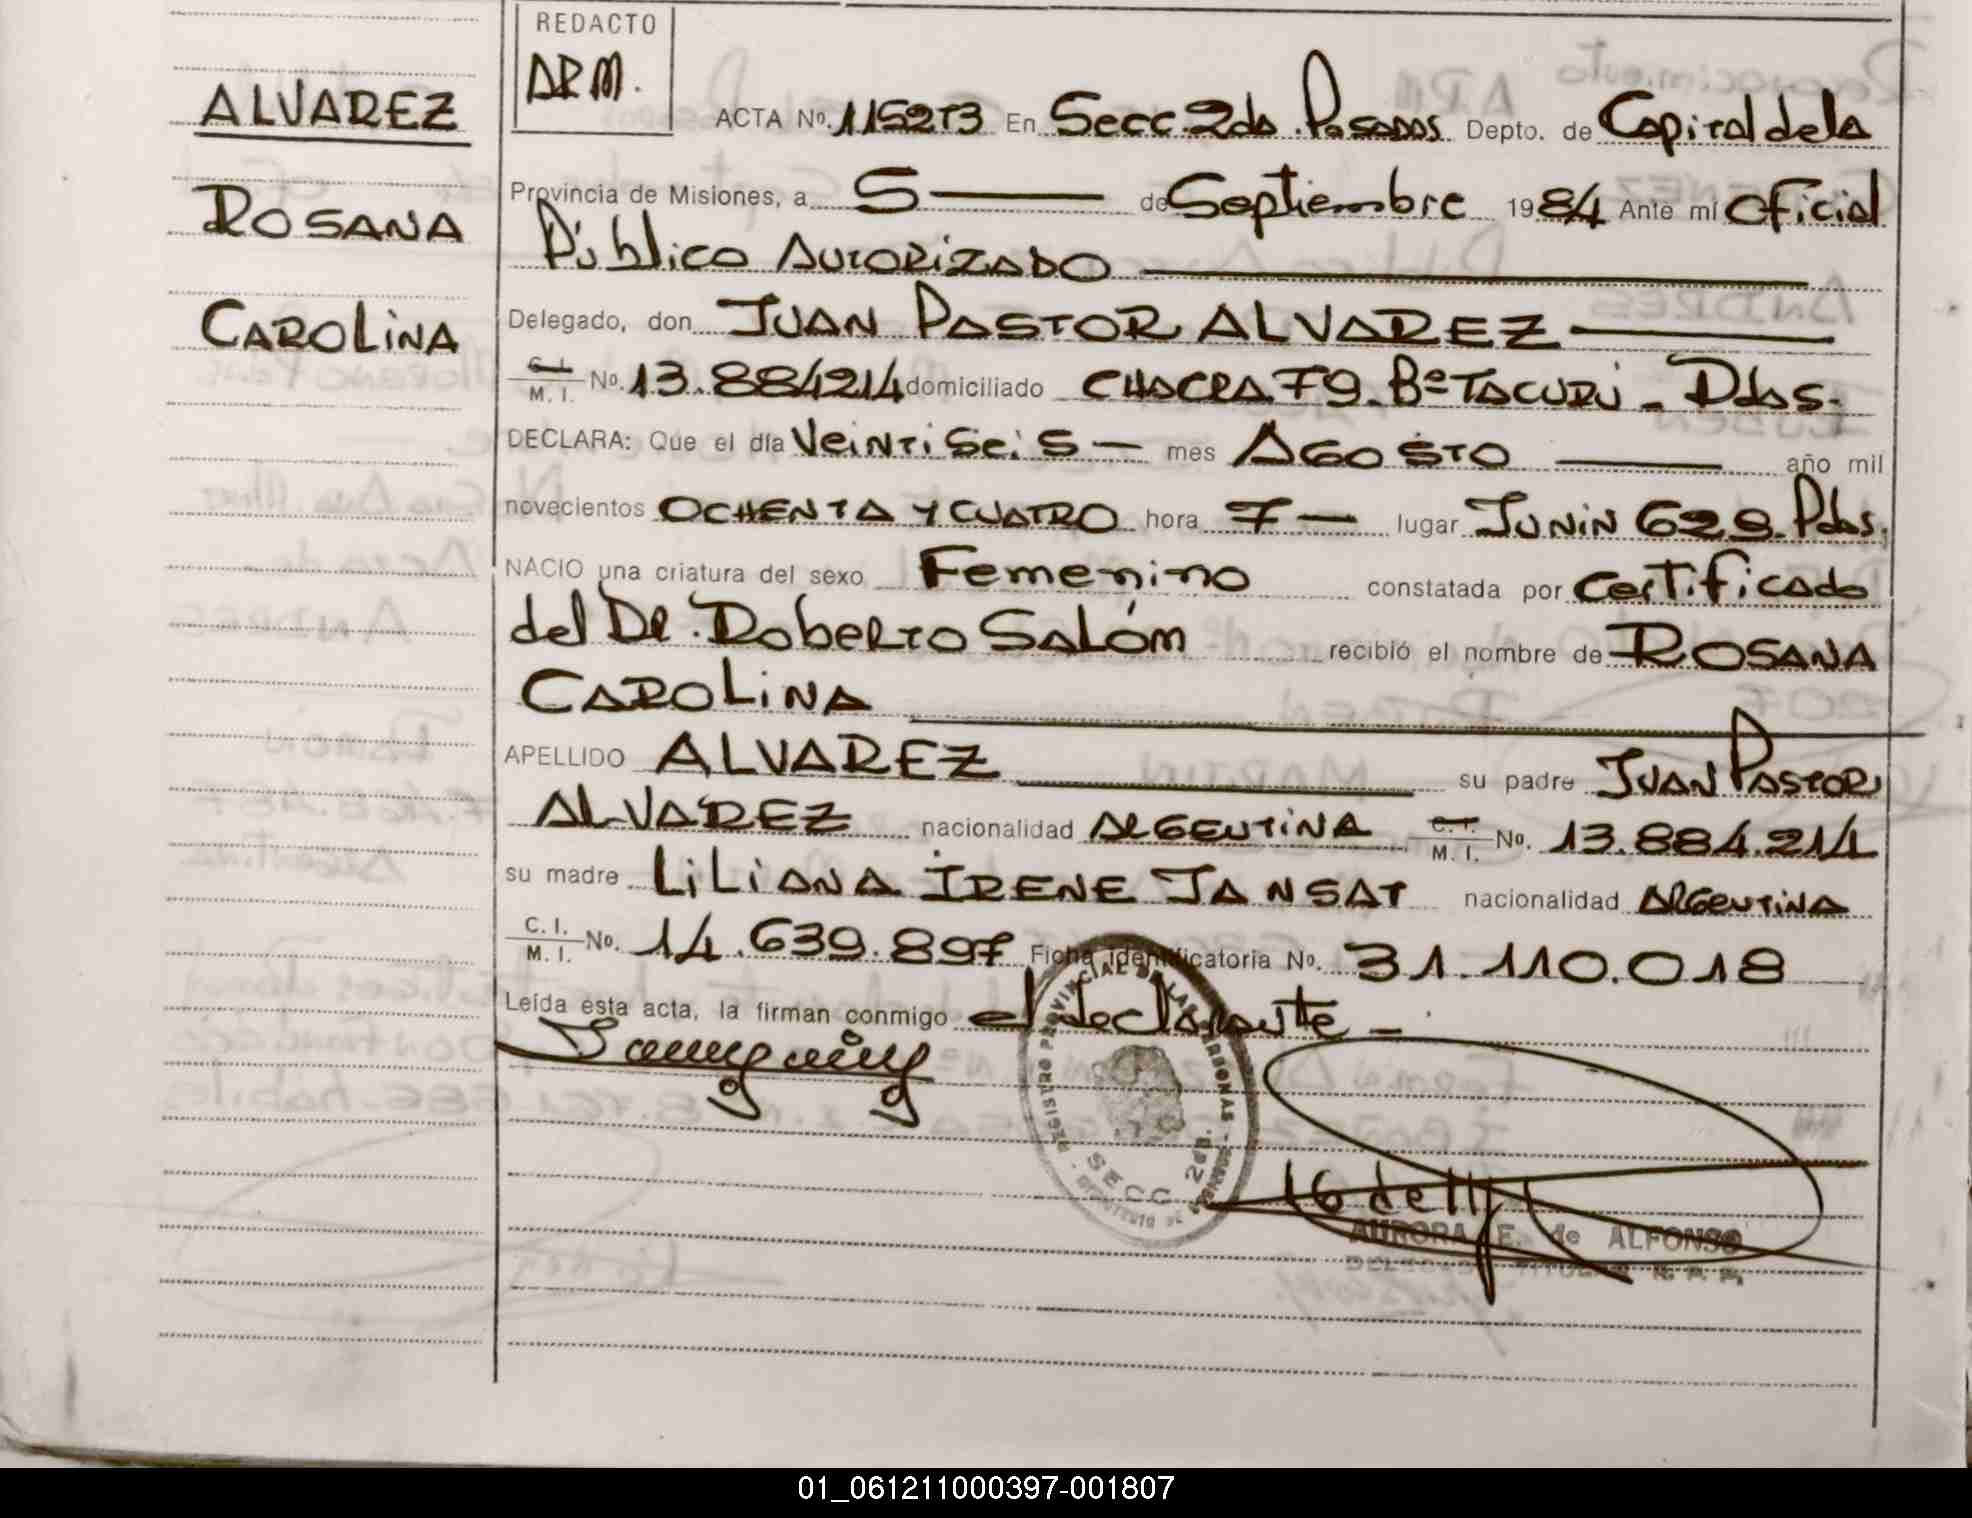 REDACTO
ARM.
ALVAREZ
ROSANA
CAROLINA
ACTA No. 115273 En Secc. 2da. Posadas Depto. de Capital de la
Provincia de Misiones, a 5 de Septiembre 1984 Ante mí Oficial
Público Autorizado
Delegado, don JUAN PASTOR ALVAREZ
C. I. M. I. No. 13.884214 domiciliado CHACRA 79. Bº TACURU - Pdas.
DECLARA: Que el día Veintiseis mes AGOSTO año mil
novecientos OCHENTA Y CUATRO hora 7 lugar JUNIN 629. Pdas.
NACIO una criatura del sexo Femenino constatada por Certificado
del Dr. Roberto Salóm recibió el nombre de ROSANA
CAROLINA
APELLIDO ALVAREZ su padre JUAN PASTOR
ALVAREZ nacionalidad ARGENTINA C. I. M. I. No. 13.884.214
su madre LILIANA IRENE JANSAT nacionalidad ARGENTINA
C. I. M. I. No. 14.639.897 Ficha identificatoria No. 31.110.018
Leída esta acta, la firman conmigo el declarante -
REGISTRO PROVINCIAL DE LAS PERSONAS
SECC. 2da.
AURORA E. de ALFONSO
DELEGADA TITULAR R. P. P.
01_061211000397-001807